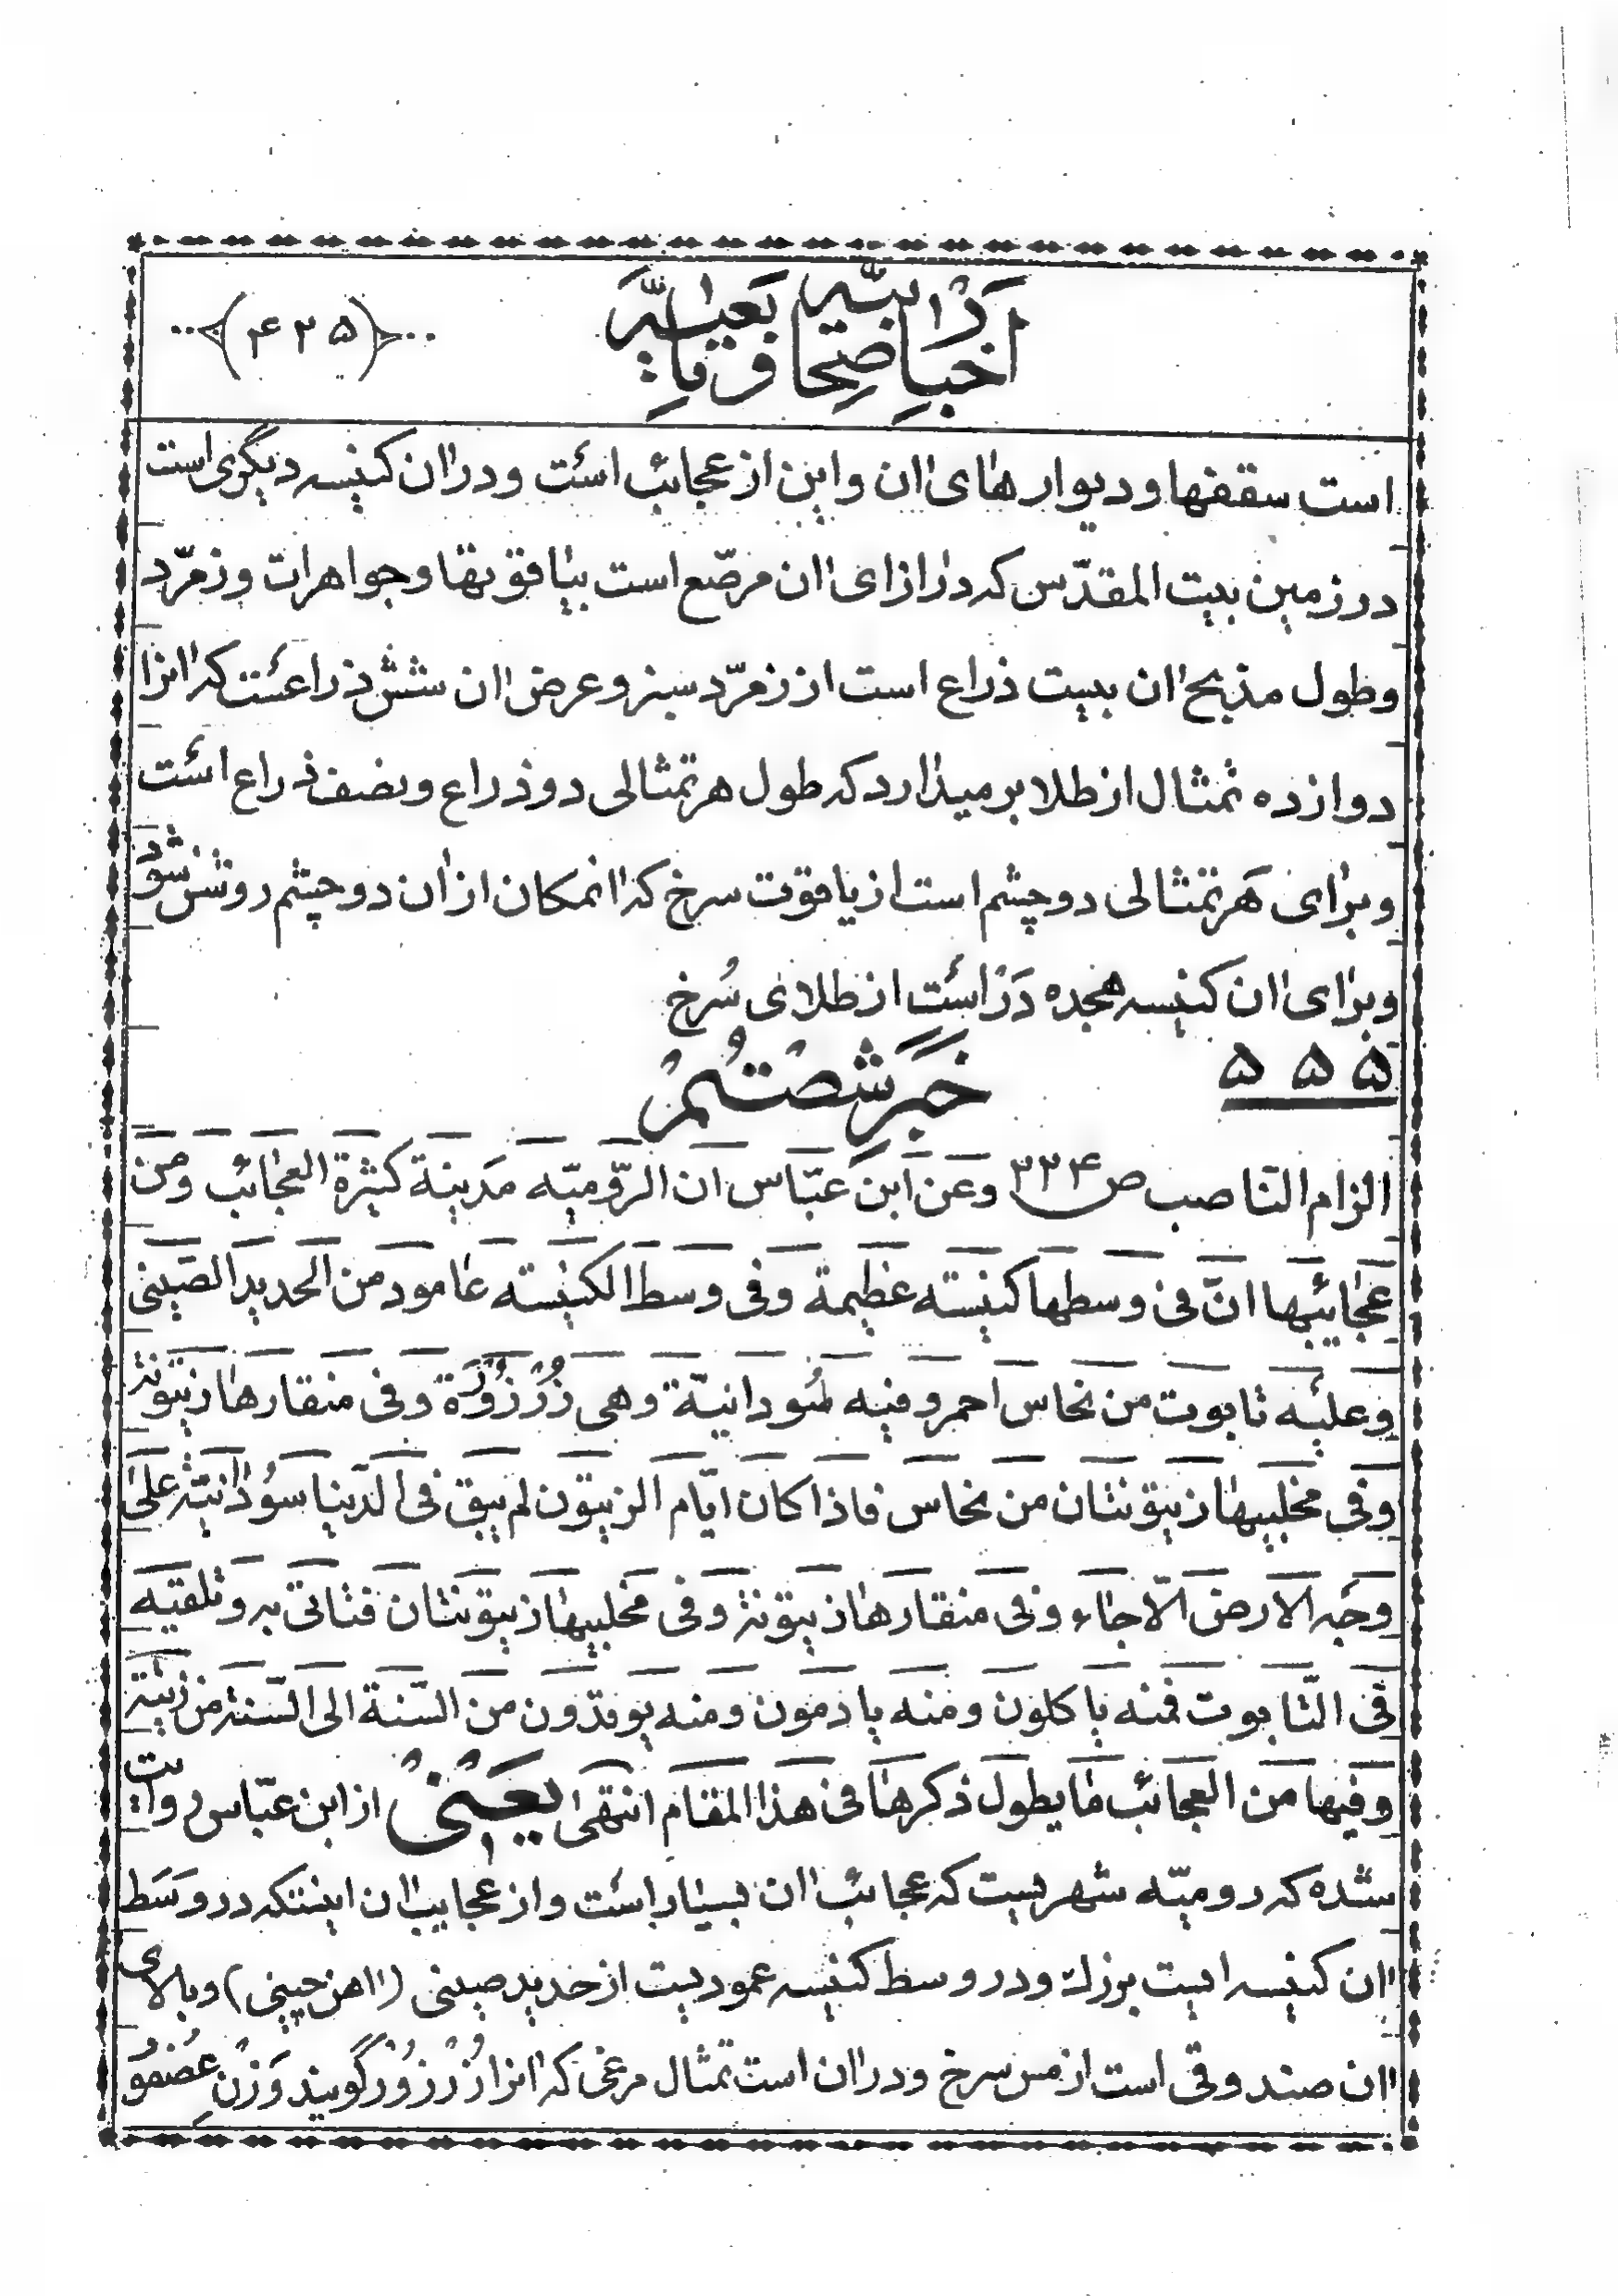 اخبار صحابه و تابعین
(۴۳۵)
است سقفها و دیوارهای آن و این از عجائب است و در آن کنیسه دیگری است
در زمین بیت المقدّس که درازای آن مرصّع است بیاقوتها و جواهرات و زمرّد
و طول مذبح آن بیست ذراع است از زمرّد سبز و عرض آن شش ذراعست که آنرا
دوازده تمثال از طلا برمیدارد که طول هر تمثالی دو ذراع و نصف ذراع است
و برای هر تمثالی دو چشم است از یاقوت سرخ که آنمکان از آن دو چشم روشن شود
و برای آن کنیسه هجده دَر است از طلای سُرخ
۵۵۵ خبر شصتم
الزام النّاصب ص ۳۳۴ و عن ابن عبّاس ان الرّومیّه مدینة کثیرة العجائب و من
عجایبها انّ فی وسطها کنیسته عظیمة و فی وسط الکنیسته عامود من الحدید الصّینی
و علیه تابوت من نحاس احمر و فیه سُودانیّة و هی زُرْزُوُرَة و فی منقارها زیتونة
و فی مخلبیها زیتونتان من نحاس فاذا کان ایّام الزیتون لم یبق فی الدّنیا سوُدانیّة علی
وجه الارض الّا جاء و فی منقارها زیتونة و فی مخلبیها زیتونتان فتاتی به و تلقیه
فی التّابوت فمنه یاکلون و منه یادمون و منه یوقدون من السّنة الی السّنة من زیته
و فیها من العجائب ما یطول ذکرها فی هذا المقام انتهی یَعنی از ابن عبّاس روایت
شده که رومیّه شهریست که عجائب آن بسیار است و از عجایب آن اینستکه در وسَط
آن کنیسه ایست بزرك و در وسط کنیسه عمودیست از حدید صینی (آهن چینی) و بالای
آن صندوقی است از مس سرخ و در آن است تمثال مرغی که آنرا زُرْزُوُر گویند وَزْن عُصْفُوُ